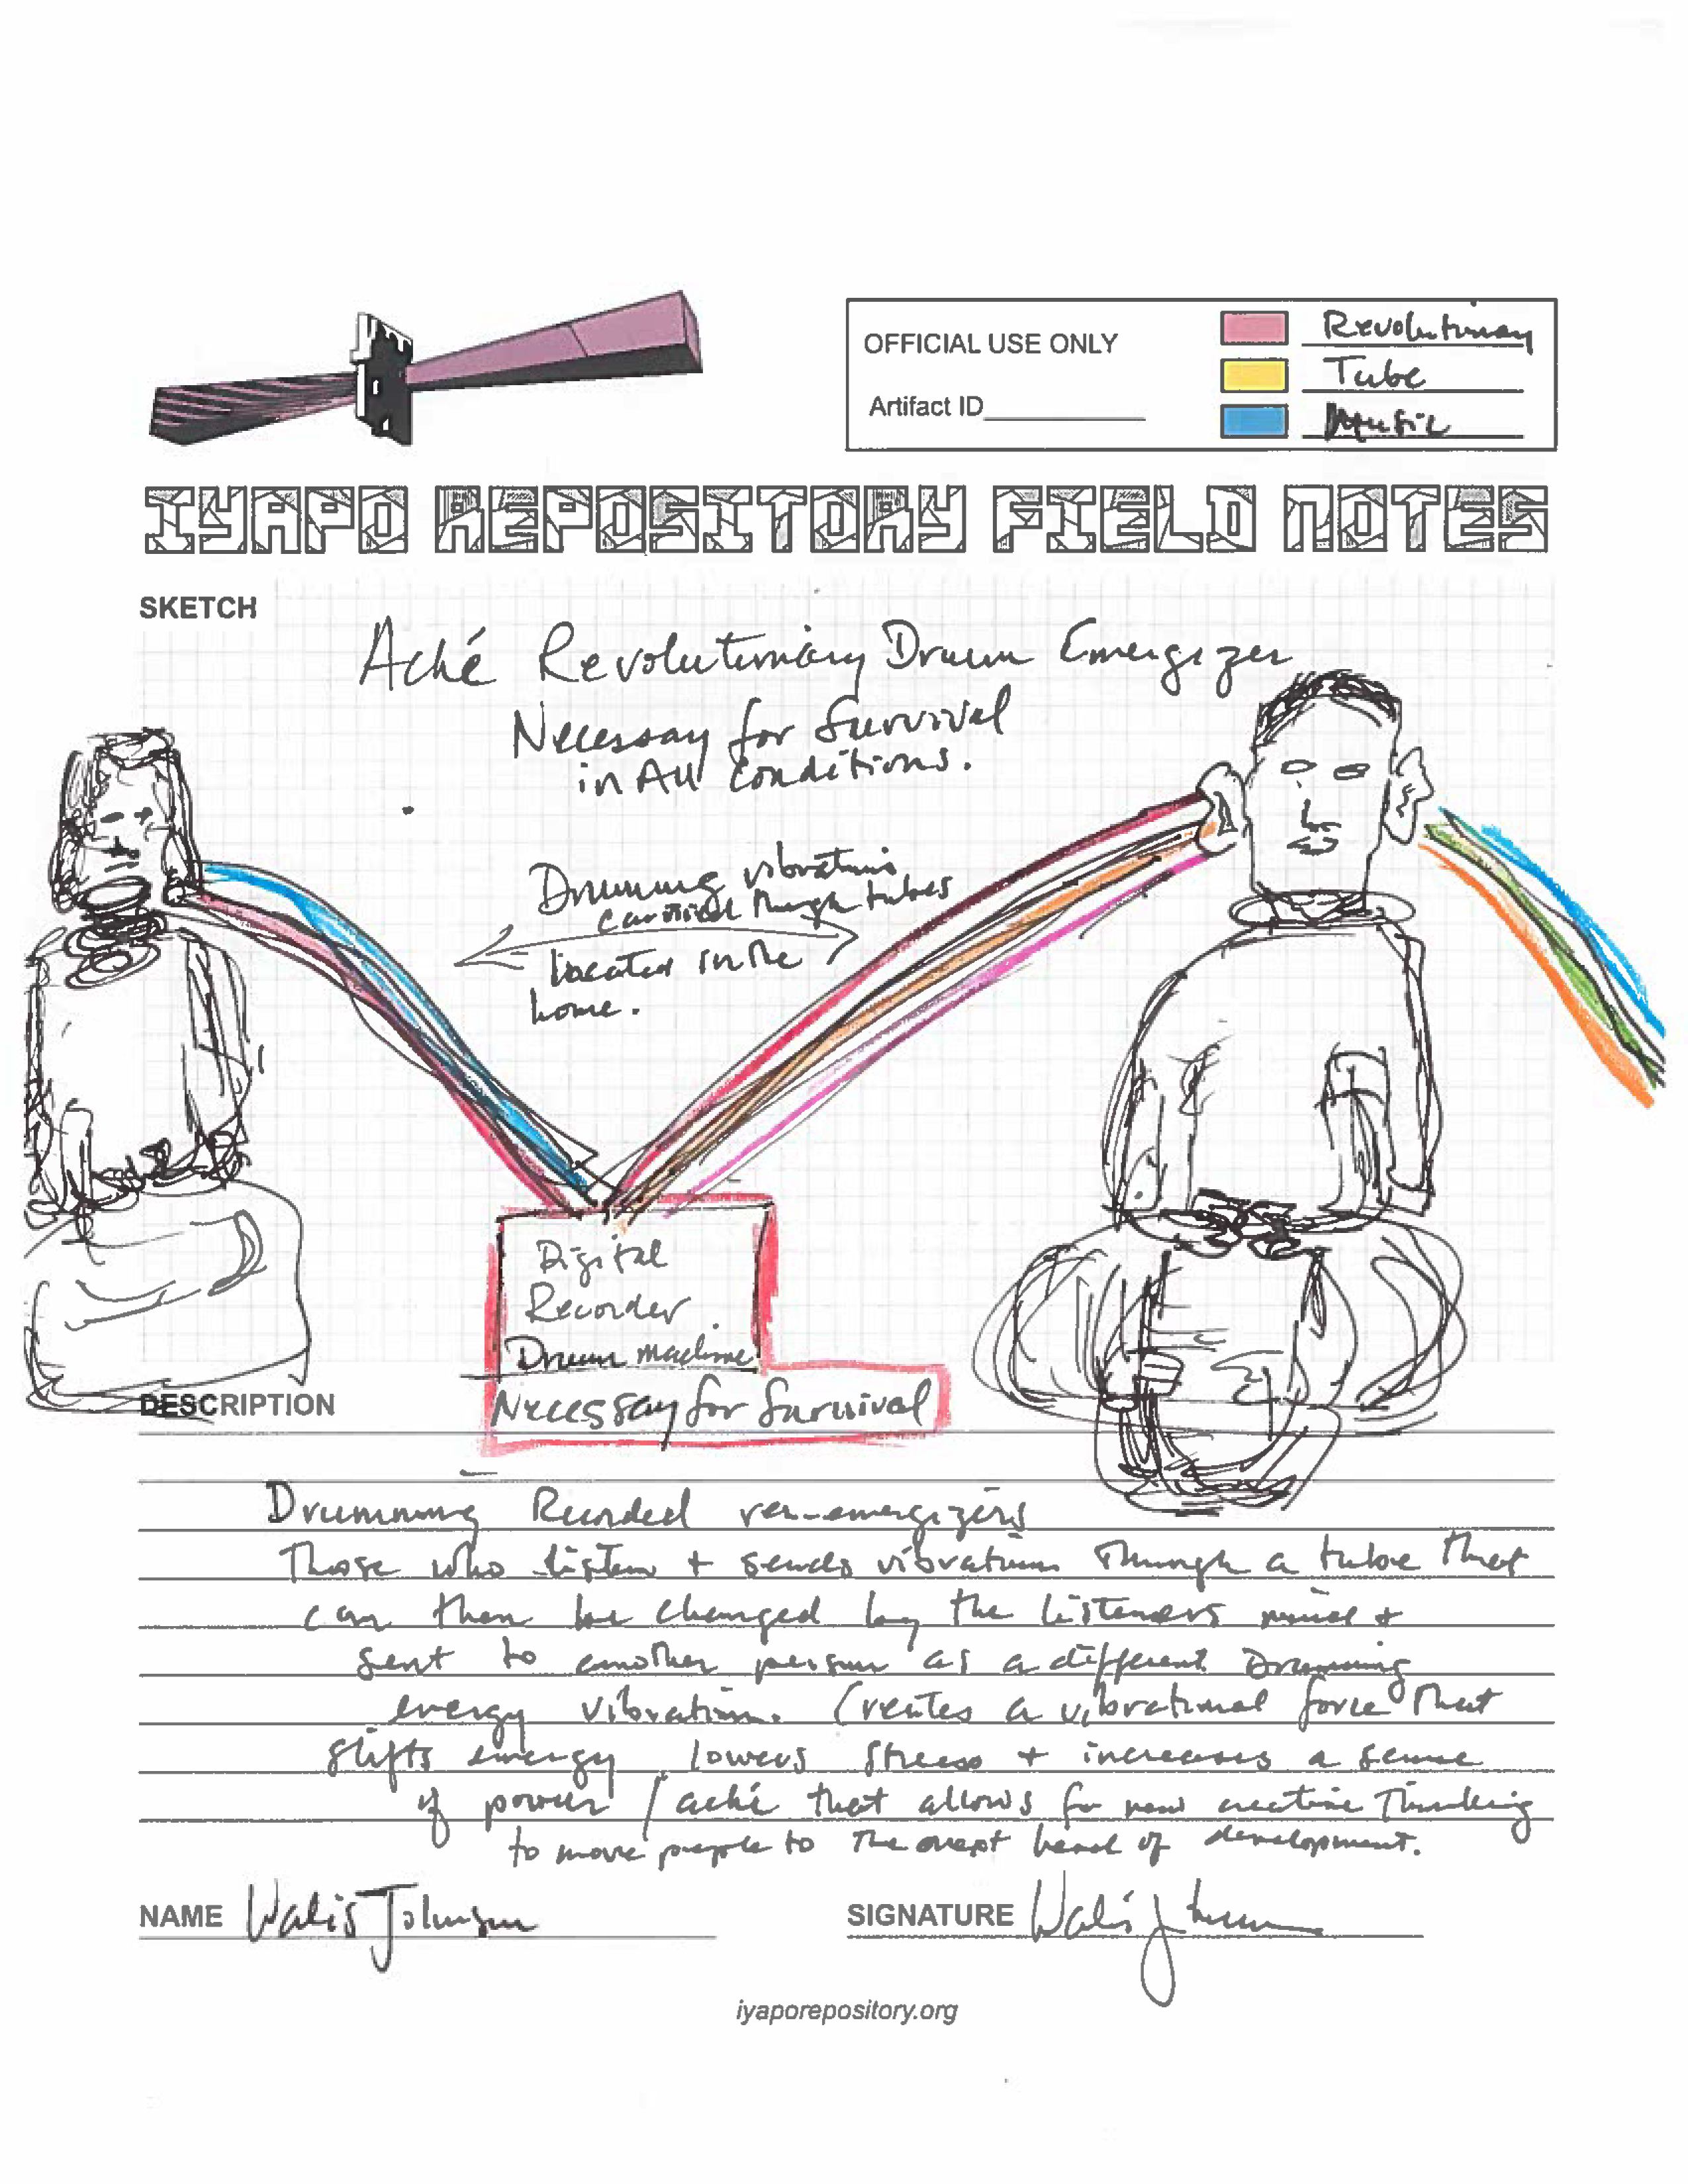 OFFICIAL USE ONLY
Artifact ID
Revolutionary
Tube
Music
IYAPO REPOSITORY FIELD NOTES
SKETCH
Aché Revolutionary Drum Energizer
Necessay for Survival
in All Conditions.
Drumming vibrations
carried though tubes
located in the
home.
Digital
Recorder
Drum machine
Necessay for Survival
DESCRIPTION
Drumming Recorded
Those who listen + sends vibrations Through a tube that
can then be changed by the listeners mind +
sent to another person as a different Drumming
energy vibration. Creates a vibrational force that
shifts energy lowers stress + increases a sense
of power / aché that allows for new creative Thinking
to move people to The next of development.
NAME Walis Johnson
SIGNATURE Walis Johnson
iyaporepository.org